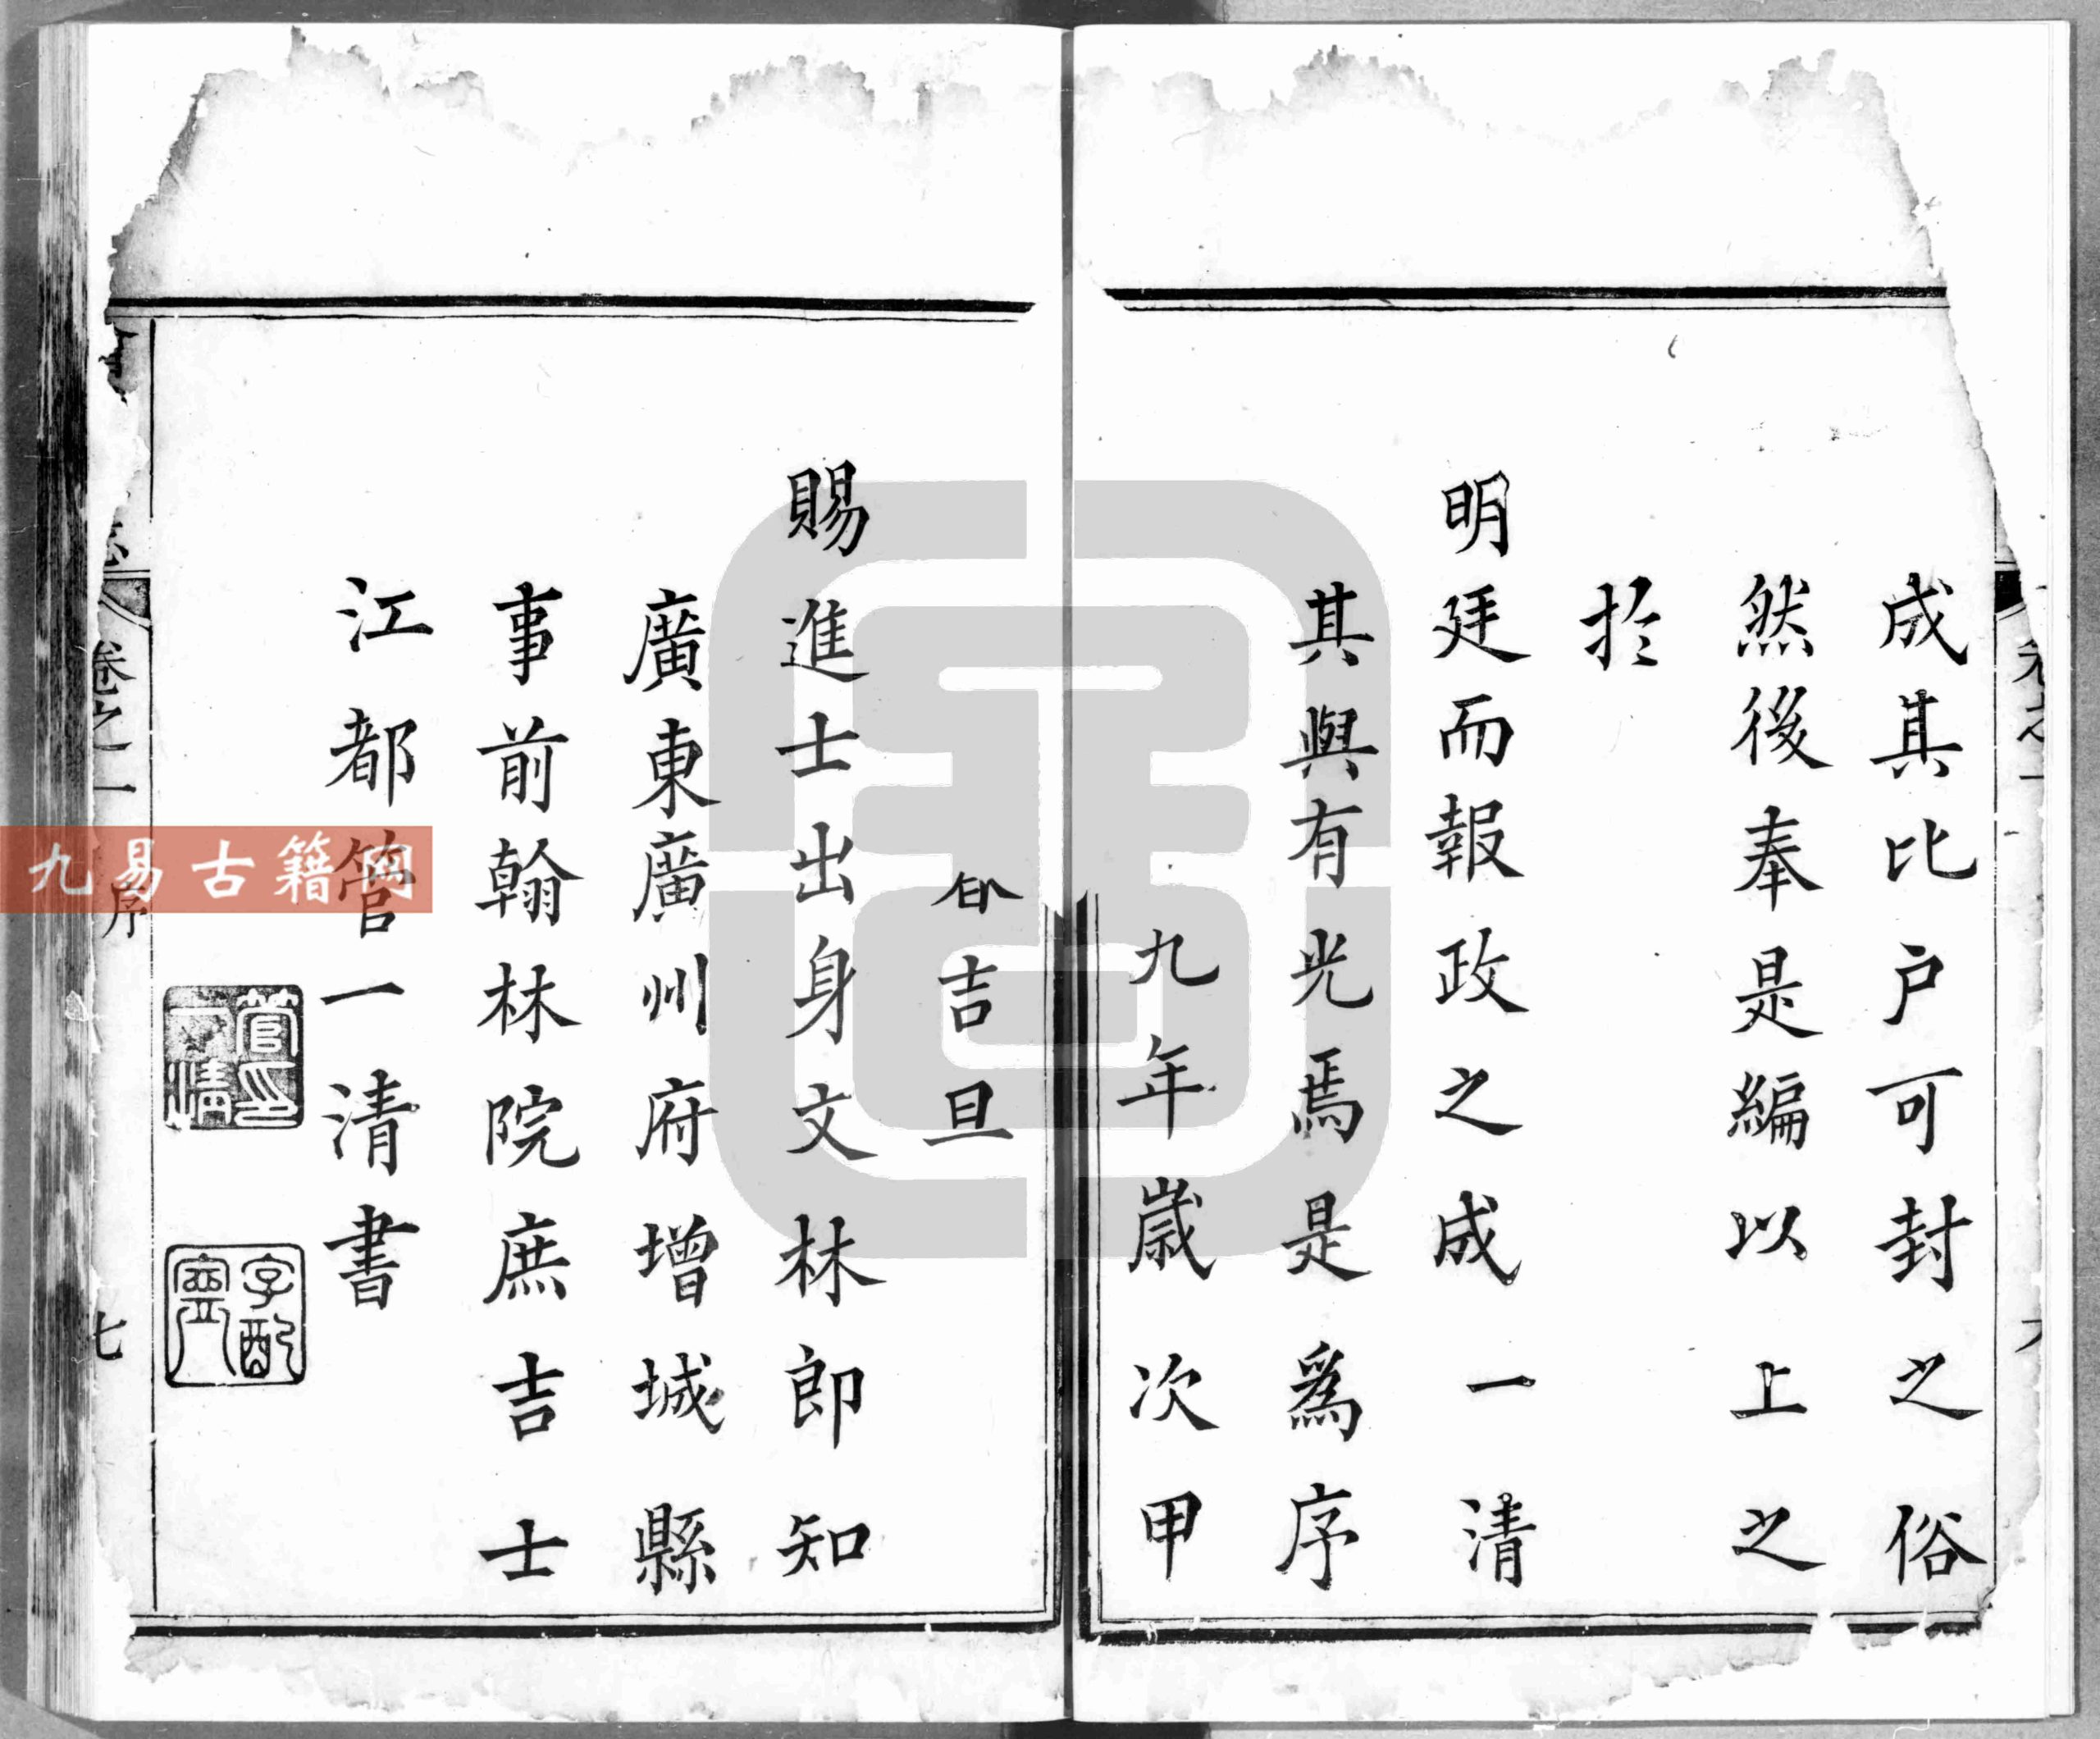 成其比户可封之俗
然後奉是編以上之
於
明廷而報政之成一清
其與有光焉是爲序
九年歲次甲
吉旦
賜進士出身文林郎知
廣東廣州府增城縣
事前翰林院庶吉士
江都管一清書
管一清印
字配
卷之一
序
七
九易古籍网